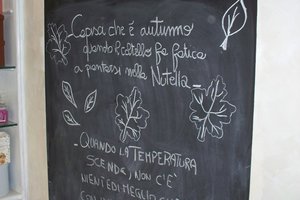 Capisci che è autunno
quando il coltello fa fatica
a piantarsi nella Nutella
- QUANDO LA TEMPERATURA
SCENDE, NON C'È
NIENTE DI MEGLIO CHE